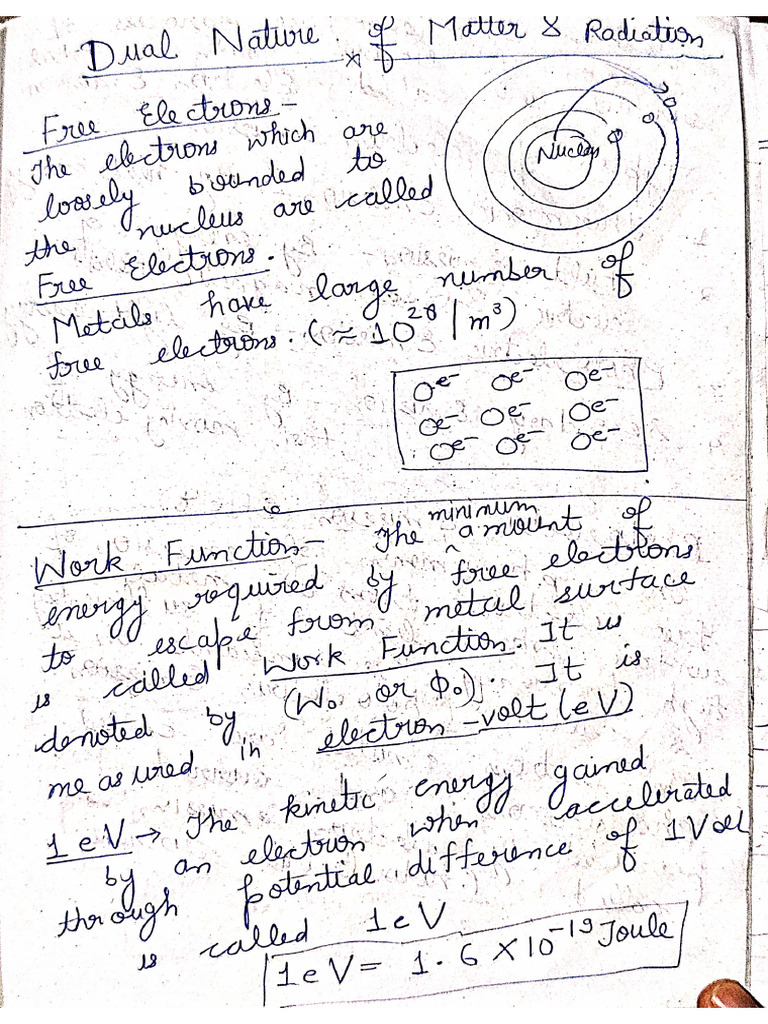 Dual Nature of Matter & Radiation
Free Electrons-
The electrons which are
loosely bounded to
the nucleus are called
Free Electrons.
Nucleus
Metals have large number of
free electrons. (≈10²⁸ / m³)
e⁻ e⁻ e⁻
e⁻ e⁻ e⁻
e⁻ e⁻ e⁻
Work Function- The minimum amount of
energy required by free electrons
to escape from metal surface
is called Work Function. It is
denoted by (W₀ or Φ₀). It is
measured in electron-volt (eV)
1eV → The kinetic energy gained
by an electron when accelerated
through potential difference of 1Volt
is called 1eV
1eV = 1.6 × 10⁻¹⁹ Joule